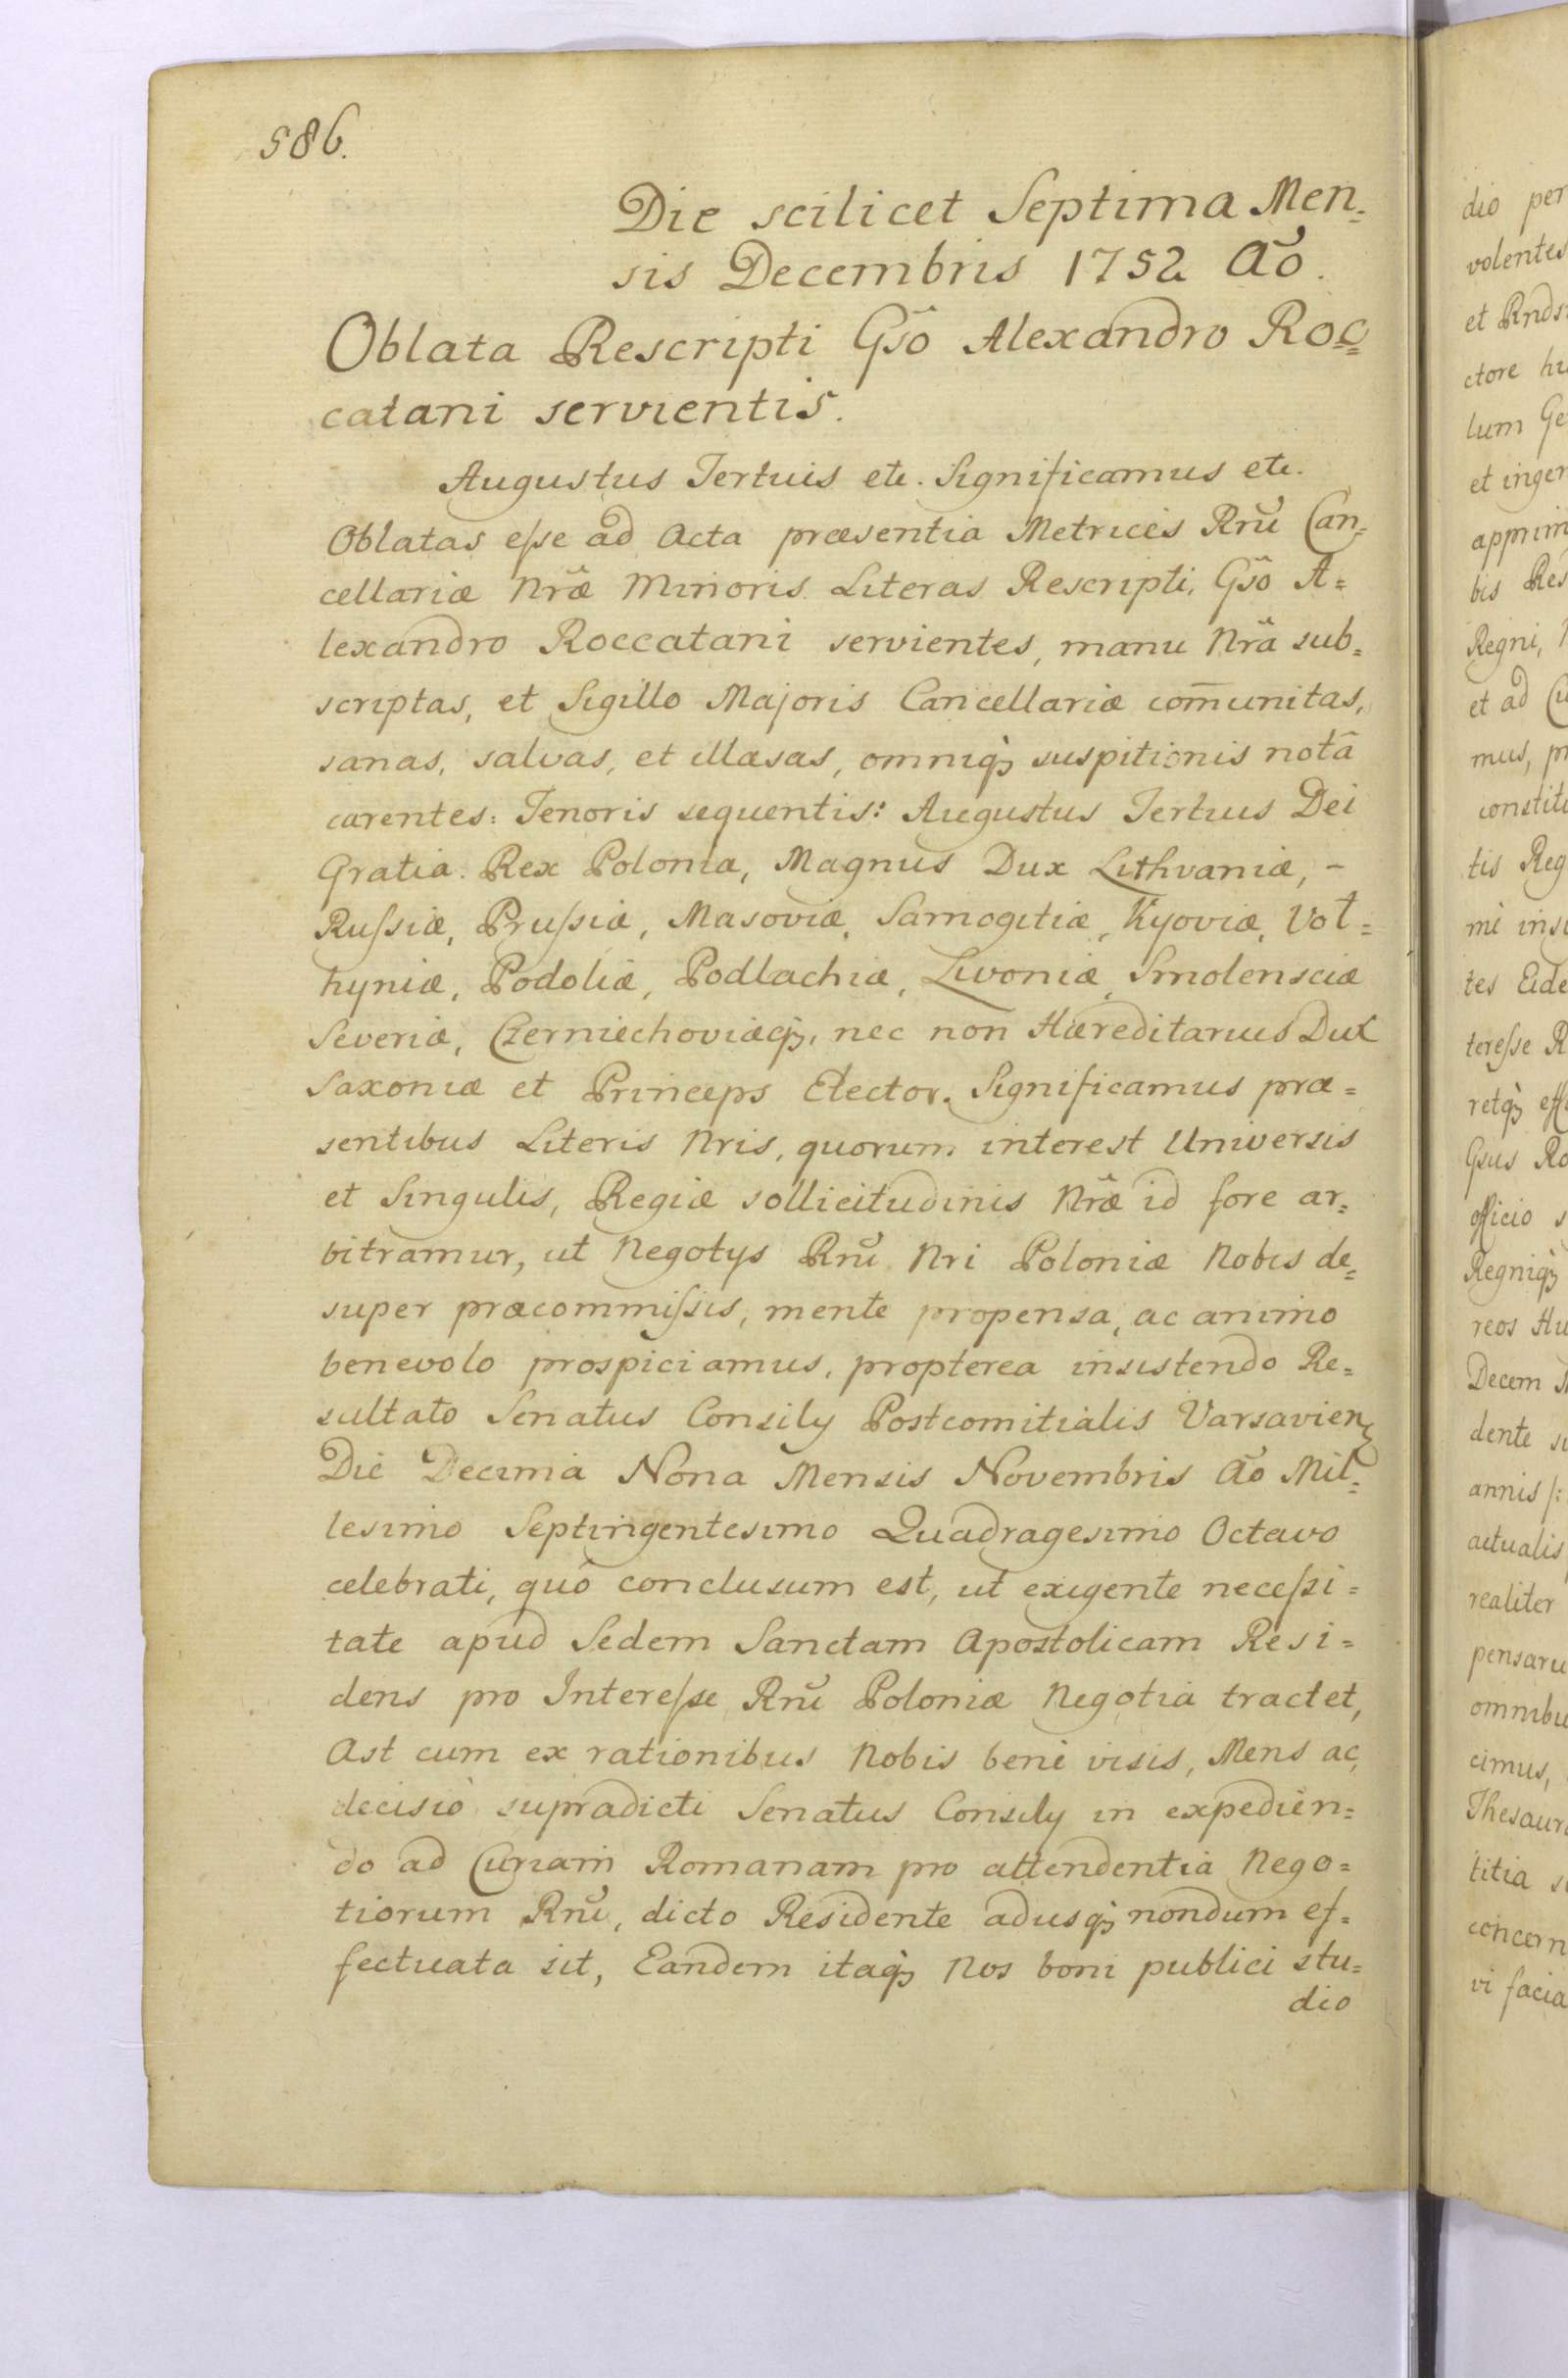 586.
Die scilicet Septima Men=
sis Decembris 1752 Aõ.
Oblata Rescripti Gsõ Alexandro Roc=
catani servientis.
Augustus Tertius etc. Significamus etc.
Oblatas eſse ad Acta præsentia Metrices Rnũ Can=
cellariæ Nræ Minoris Literas Rescripti, Gsõ A=
lexandro Roccatani servientes, manu Nrã sub=
scriptas, et Sigillo Majoris Cancellariæ com̄unitas,
sanas, salvas, et illæsas, omniq̀ȝ suspitionis notâ
carentes: Tenoris sequentis: Augustus Tertius Dei
Gratia. Rex Poloniæ, Magnus Dux Lithvaniæ, –
Ruſsiæ, Pruſsiæ, Masoviæ, Samogitiæ, Kyoviæ, Vol=
hyniæ, Podoliæ, Podlachiæ, Livoniæ, Smolensciæ
Severiæ, Czerniechoviæq̀ȝ, nec non Hæreditarius Dux
Saxoniæ et Princeps Elector. Significamus præ=
sentibus Literis Nris, quorum interest Universis
et Singulis, Regiæ sollicitudinis Nræ id fore ar=
bitramur, ut Negotys Rnũ Nri Poloniæ Nobis de=
super præcommiſsis, mente propensa, ac animo
benevolo prospiciamus, propterea insistendo Re=
sultato Senatus Consily Postcomitialis Varsavienȝ
Die Decima Nona Mensis Novembris Aõ Mil=
lesimo Septingentesimo Quadragesimo Octavo
celebrati, quô conclusum est, ut exigente neceſsi=
tate apud Sedem Sanctam Apostolicam Resi=
dens pro Intereſse Rnũ Poloniæ Negotia tractet,
Ast cum ex rationibus Nobis benè visis, Mens ac
decisio supradicti Senatus Consily in expedien=
do ad Curiam Romanam pro attendentia Nego=
tiorum Rnũ, dicto Residente adusq̀ȝ nondum ef=
fectuata sit, Eandem itaq̀ȝ Nos boni publici stu=
dio
dio per
volentes
et Rnds
ctore hu
lum Ge
et inger
apprim
bis Res
Regni,
et ad
mus, pr
constitu
tis Reg
mi insi
tes Eide
tereſse R
retq̀ȝ eff
Gsus Ro
officio s
Regniq̀ȝ
reos Hu
Decem
dente su
annis /:
actualis
realiter
pensaru
omnibu
cimus,
Thesaur
titia s
concern
vi facia